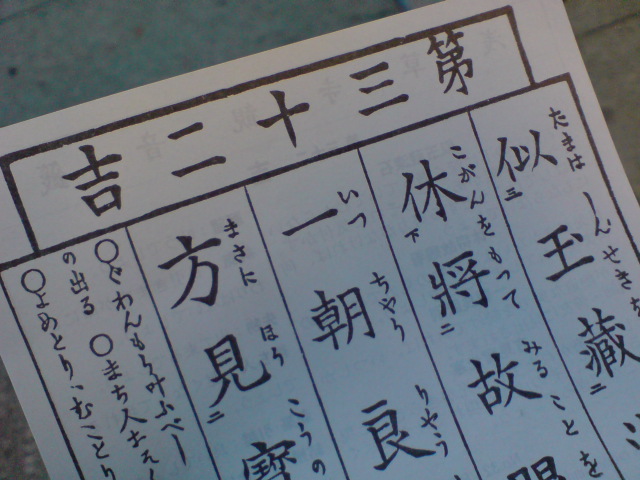 第三十二吉
たまは しんせき
似三玉藏二
こがんをもつて みることを
休下將二故
いつ ちやう りやう
一朝良
まさに ほう こうの
方見二寶
○ぐわんもう叶ふべし
の出る ○まち人
○よめとり、むことり